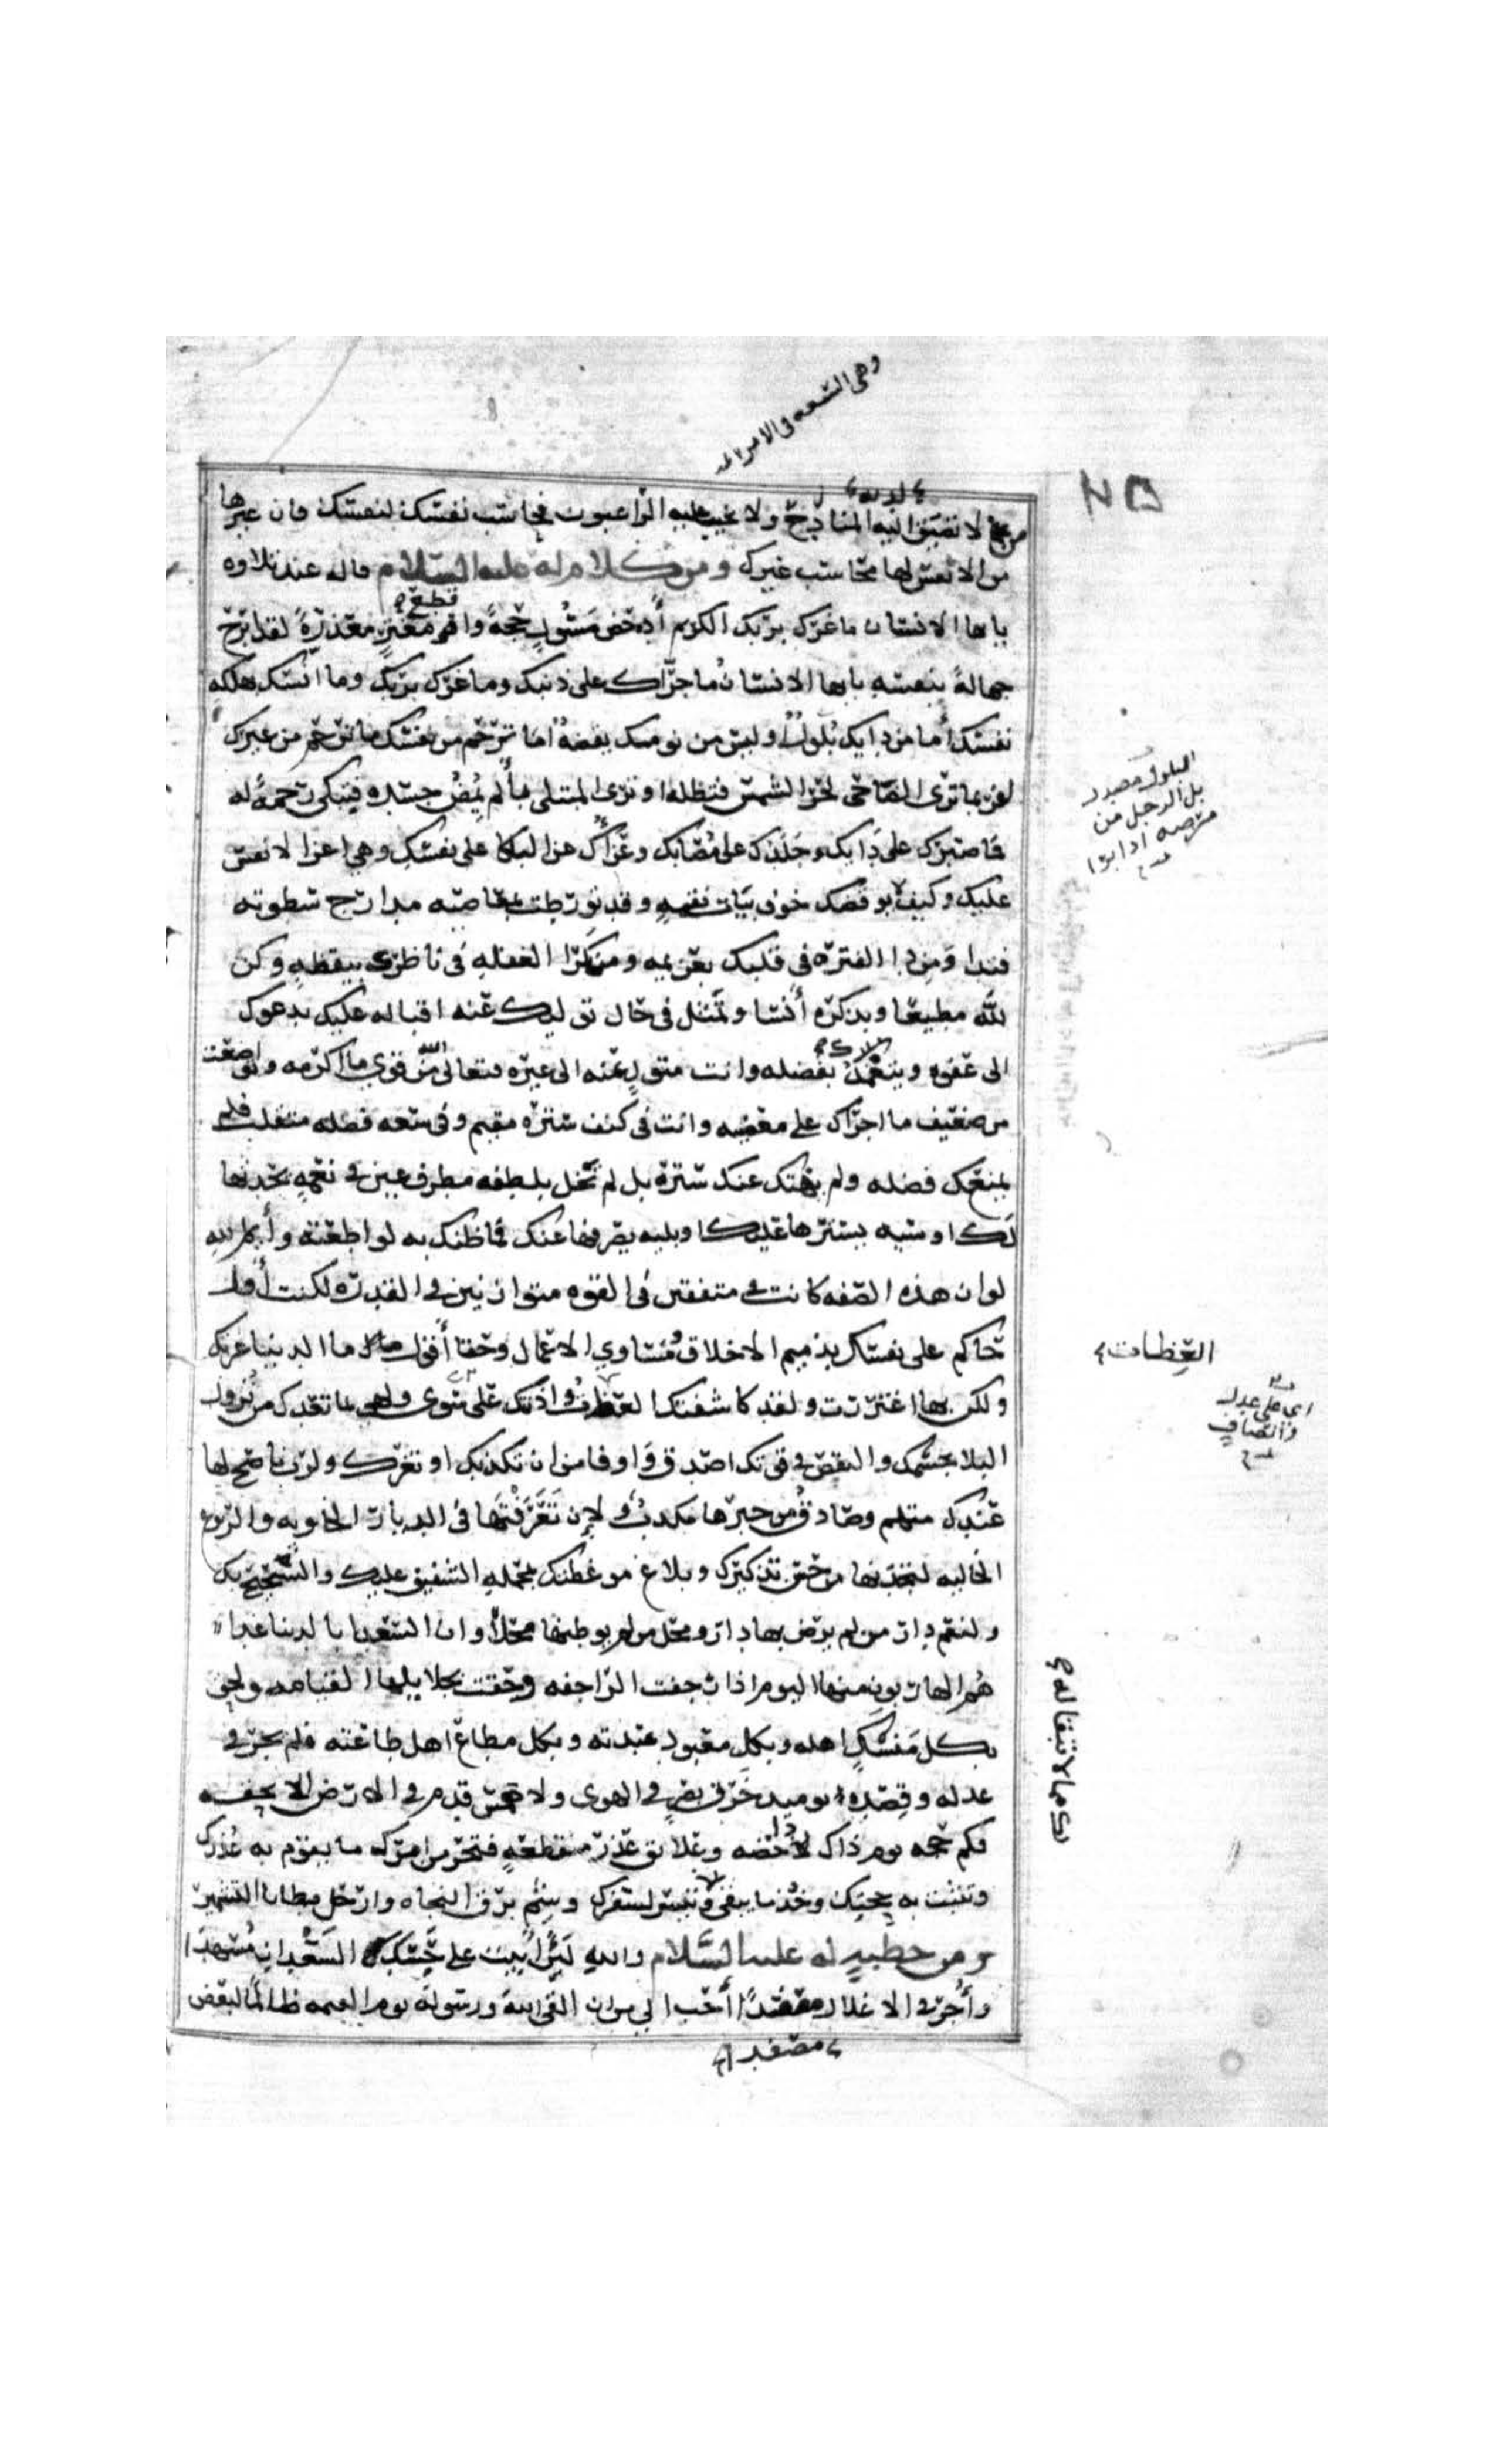 وهي السعه في الامر تمت
من لا تضيق لديه المنادح ولا يخيب عليه الراغبون فحاسب نفسك لنفسك فان غيرها
من الانفس لها محاسب غيرك ومن كلام له عليه السلام قاله عند تلاوه
يايها الانسان ما غرك بربك الكريم أدحض مسئول حجةً واقطع مغتر معذرةً لقد ابرح
جهالةً بنفسه يايها الانسان ما جرّاك على ذنبك وما غرك بربك وما انسك بهلكه
نفسك أما من دايك بلول وليس من نومتك يقضه اما ترحم من نفسك ما ترحم من غيرك
لربما ترى الضاحي لحر الشمس فتظله او ترى المبتلى بألم يمض جسده فتبكي رحمةً له
فما صبرك على دايك وجلدك على مصابك وعزاك عن البكا على نفسك وهي اعز الانفس
عليك وكيف لا يوقضك خوف بيات نقمه وقد تورطت بمعاصيه مدارج سطوته
فتداو من دا الفتره في قلبك بعزيمه ومن كرا الغفله في ناظرك بيقظه وكن
لله مطيعا وبذكره أنسا وتمثل في حال توليك عنه اقباله عليك يدعوك
الى عفوه ويتغمدك بفضله وانت متول عنه الى غيره فتعالى من قوي ما اكرمه وتواضعت
من ضعيف ما اجراك على معصيه وانت في كنف ستره مقيم وفي سعه فضله متقلب فلم
يمنعك فضله ولم يهتك عنك ستره بل لم تخل بلطفه مطرف عين في نعمه يحدثها
لك او سيه يسترها عليك او بليه يصرفها عنك فما ظنك به لو اطعته وأيم الله
لو ان هذه الصفه كانت في متفقين في القوه متوازنين في القدره لكنت أول
حاكم على نفسك بذميم الاخلاق ومساوي الاعمال وحقا أقول ما الدنيا غرتك
ولكن بها اغتررت ولقد كاشفتك العظات واذنتك على سوى ولهي بما تعدك من نزول
البلا بجسمك والنقص في قوتك اصدق واوفا من ان تكذبك او تغرك ولرب ناصح لها
عندك متهم وصادق من خبرها مكذب ولإن تعرّفتها في الديار الخاويه والربوع
الخاليه لتجدنها من حسن تذكيرك وبلاغ موعظتك بمحله الشفيق عليك والشحيح بك
ولنعم دار من لم يرض بها دار ومحل من لم يوطنها محلاً وان السعدا بالدنيا غدا
هم الهاربون منها اليوم اذا رجفت الراجفه وحقت بجلايلها القيامه ولحق
بكل منسك اهله وبكل معبود عبدته وبكل مطاع اهل طاعته فلم يجر في
عدله وقصده يوميذ خرق بصر في الهوى ولا همس قدم في الارض الا بحقه
فكم حجه يوم ذاك داحضه وعلايق عذر منقطعه فتحر من امرك ما يقوم به عذرك
وتثبت به حجتك وخذ ما يبقى وتيسر لسفرك وشم برق النجاه وارحل مطايا التشمير
ومن خطبه له عليه السلام والله لئن أبيت على حسك السعدان مسهدا
وأُجر في الاغلال مصفدا أحب الي من ان القى الله ورسوله يوم القيمه ظالماً لبعض
مصفدا
البلول مصدر
بل الرجل من
مرضه اذا برا
تمت
العظات
اي على عدل
وانصاف
تمت
كما لا تبقا له